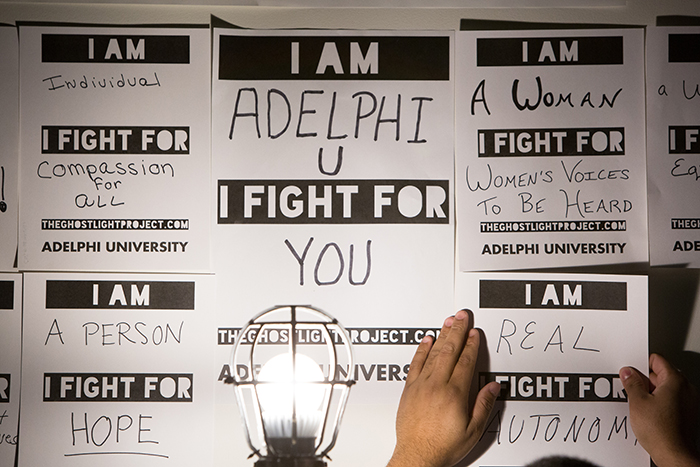 I AM
Individual
I FIGHT FOR
Compassion
for
all
THEGHOSTLIGHTPROJECT.COM
ADELPHI UNIVERSITY
I AM
ADELPHI
U
I FIGHT FOR
YOU
THEGHOSTLIGHTPROJECT.CO
ADELPHI UNIVERS
I AM
A WOMAN
I FIGHT FOR
WOMEN'S VOICES
TO BE HEARD
THEGHOSTLIGHTPROJECT.COM
ADELPHI UNIVERSITY
I AM
A PERSON
I FIGHT FOR
HOPE
I AM
REAL
I FIGHT FOR
AUTONOM